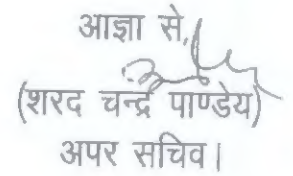 आज्ञा से,
(शरद चन्द्र पाण्डेय)
अपर सचिव।